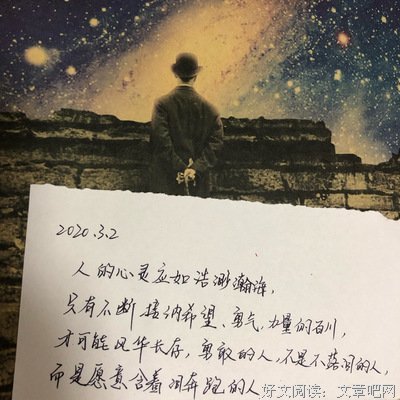 2020.3.2
人的心灵应如浩渺瀚海，
只有不断接纳希望、勇气、力量的百川，
才可能风华长存，勇敢的人，不是不落泪的人，
而是愿意含着泪奔跑的人
好文阅读：文章吧网